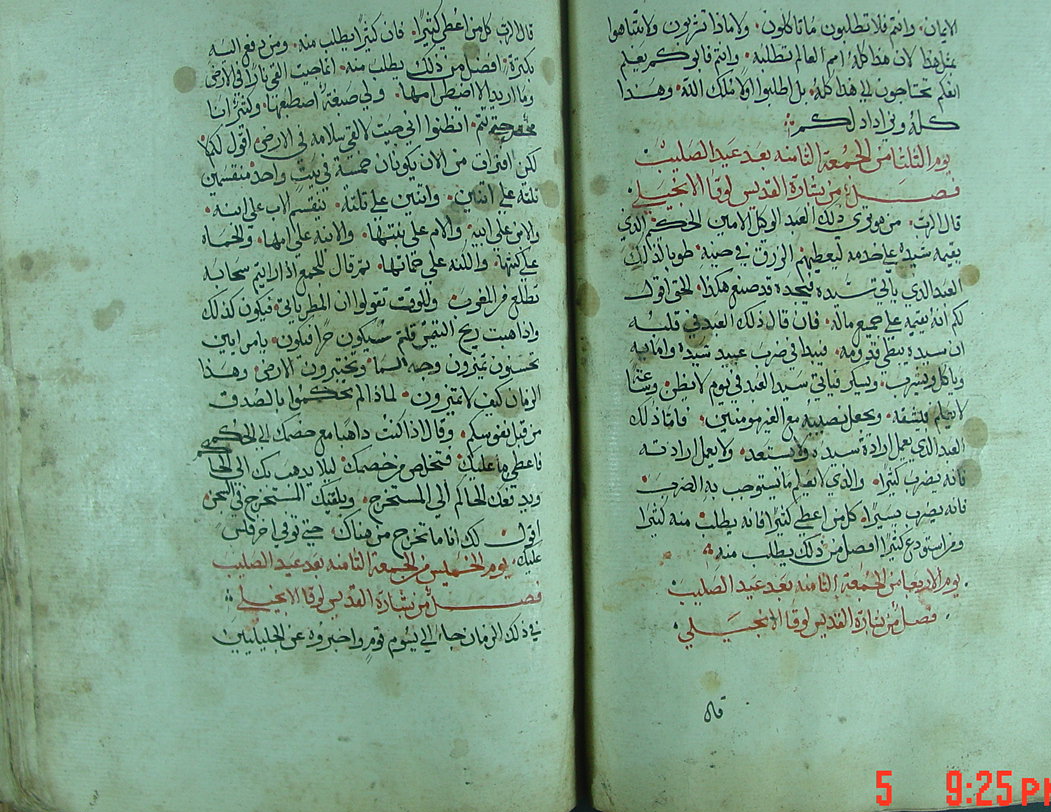 الايمان. وانتم فلا تطلبون ما تاكلون. ولا ماذا تشربون ولا تتباهوا
بمثل هذا لان هذا كله امم العالم تطلبه. وانتم فابوكم يعلم
انكم تحتاجون الي هذا كله. بل اطلبوا ولا ملك الله. وهذا
كله ونزاداد لكم
يوم الثلثا من الجمعة الثامنه بعد عيد الصليب
فصل من بشارة القديس لوقا الانجيلي
قال الرب. من هو تري ذلك العبد الوكل الامين الحكيم الذي
يقيمه سيده علي خدمه ليعطيهم الرزق في حينه. طوبا لذلك
العبد الذي ياتي سيده ليجده قد صنع هكذا. الحق اقول
لكم انه يقيمه علي جميع ماله. فان قال ذلك العبد في قلبه
ان سيده يبطي قدومه. فيبدا في ضرب عبيد سيده وامايه
وياكل ويشرب. ويسكر فياتي سيد العبد في يوم لا يظن. وساعة
لا يعلم فيشقه. ويجعل نصيبه مع الغير مومنين. فاما ذلك
العبد الذي يعمل ارادة سيده ولا يستعد. ولا يعمل ارادته
فانه يضرب كثيرا. والذي لا يعلم ما يستوجب به الضرب
فانه يضرب يسيرا. كل من اعطي كثيرا فانه يطلب منه كثيرا
ومن استودع كثيرا افضل من ذلك يطلب منه
يوم الاربعا من الجمعة الثامنه بعد عيد الصليب
فصل من بشارة القديس لوقا الانجيلي
قال
قال الرب كل من اعطي كثيرا. فان كثيرا يطلب منه. ومن دفع اليه
بكثرة. افضل من ذلك يطلب منه. انما جيت القي نارا في الارض
وما اريد الا اضطرامها. ولي صبغة اصطبغها. وكثيرا انا
حتي تتم. اتظنوا اني جيت لالقي سلامه في الارض. اقول لكم لا
لكن افتراق من الان يكونان خمسة في بيت واحد منقسمين
ثلثه علي اثنين. واثنين علي ثلثه. ينقسم الاب علي ابنه.
والابن علي ابيه. والام علي بنتها. والابنه علي امها. والحماه
علي كنتها. والكنه علي حماتها. ثم قال للجمع اذا رايتم سحابه
تطلع من المغرب. وللوقت تقولوا ان المطر ياتي. فيكون كذلك
واذا هبت ريح التيمن قلتم سيكون حرا فيكون. يا مرايين
تحسنون تميزون وجه السما. وتختبرون الارض. وهذا
الزمان كيف لا تميزون. لماذا لم تحكموا بالصدق
من قبل نفوسكم. وقال اذا كنت ذاهبا مع خصمك الي الحكم
فاعطي ما عليك. فتخلص من خصمك. ليلا يذهب بك الي الحاكم
ويدفعك الحاكم الي المستخرج. ويلقيك المستخرج في السجن
اقول لك انك ما تخرج من هناك. حتي توفي اخر فلس
عليك. يوم الخميس من الجمعة الثامنه بعد عيد الصليب
فصل من بشارة القديس لوقا الانجيلي
في ذلك الزمان جاء الي يسوع قوم. واخبروه عن الجليليين
5 9:25 PM